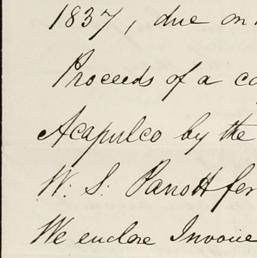 1837, due on
Proceeds of a
Acapulco by the
W. S. Parrott
We enclose Invoice